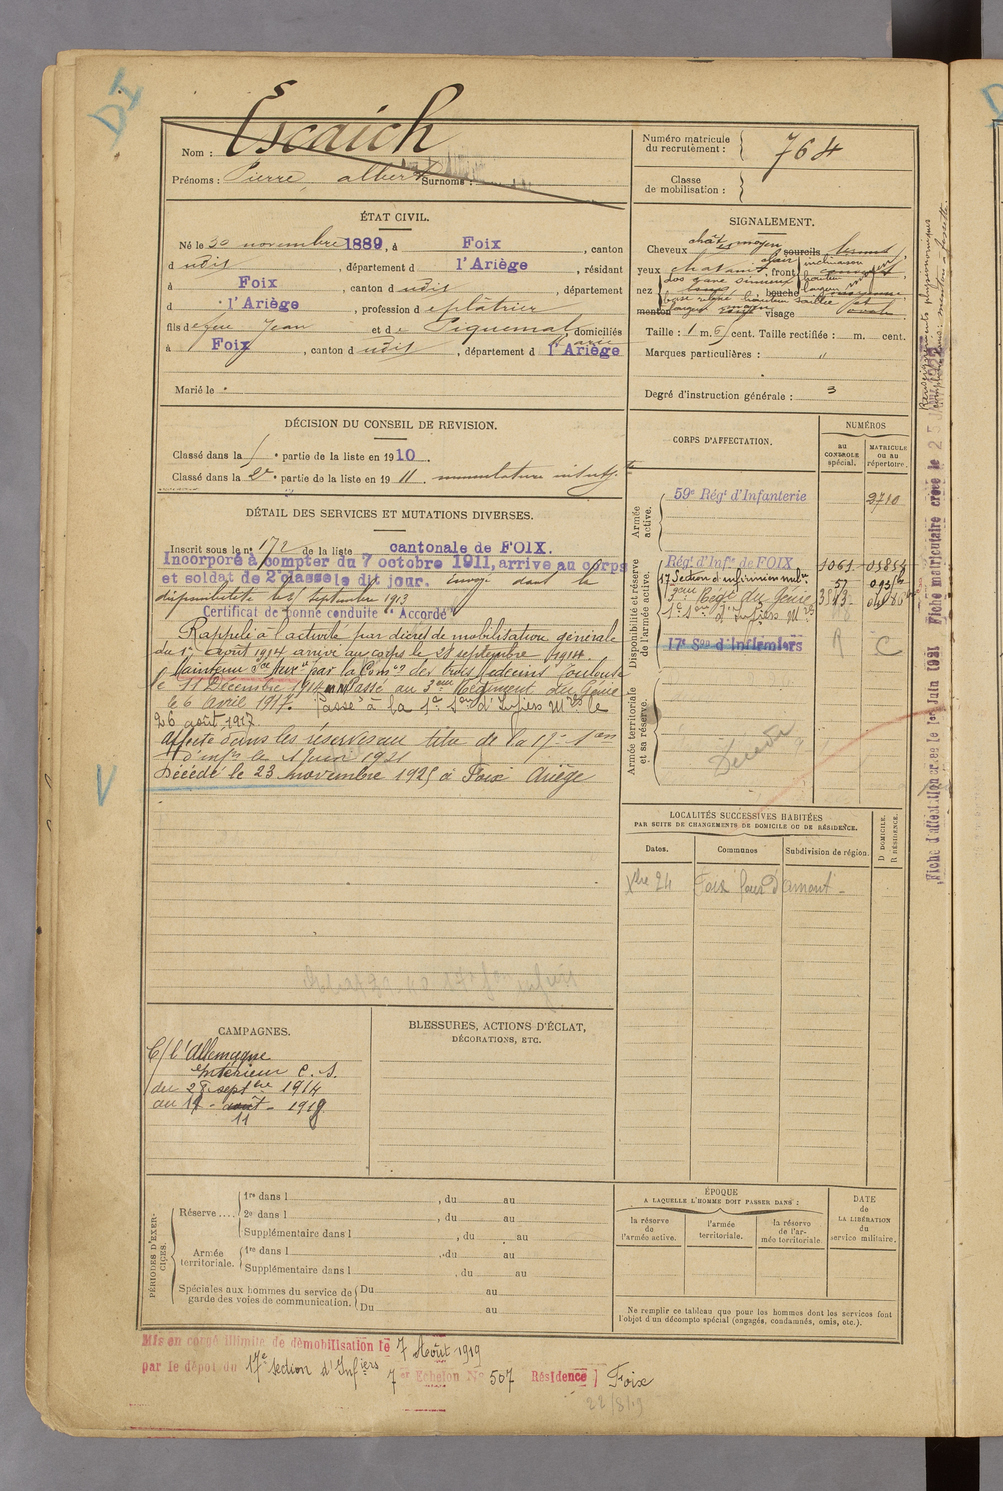 DI
Nom : Escaich
Prénoms : Pierre, albert Surnoms :
Numéro matricule du recrutement : 764
Classe de mobilisation :
ÉTAT CIVIL.
Né le 30 novembre 1889, à Foix, canton
d udit, département d l'Ariège, résidant
à Foix, canton d udit, département
d l'Ariège, profession d e plâtrier
fils d e feu Jean et d e Piquemal domiciliés
à Foix, canton d udit, département d l'Ariège
Marié le
SIGNALEMENT.
Cheveux chât moyen sourcils
yeux, front
nez bouche
menton visage
Taille : 1 m. cent. Taille rectifiée : m. cent.
Marques particulières : "
Degré d'instruction générale : 3
DÉCISION DU CONSEIL DE REVISION.
Classé dans la 5e partie de la liste en 1910.
Classé dans la 2e partie de la liste en 1911.
DÉTAIL DES SERVICES ET MUTATIONS DIVERSES.
Inscrit sous le n° 172 de la liste cantonale de FOIX.
Incorporé à compter du 7 octobre 1911, arrive au corps
et soldat de 2e classe le dit jour. Envoyé dans la
disponibilité le septembre 1913
Certificat de bonne conduite "Accordé"
Rappelé à l'activité par décret de mobilisation générale
du 1er août 1914 arrivé au corps le 28 septembre 1914.
Maintenu par la Comon des trois médecins Toulouse
le 11 Décembre 1914. Passé au 3eme Régiment du Génie
le 6 avril 1917. Passé à la 1e Son d'Infiers Mres le
26 août 1917
Affecté dans les réserves au titre de la 17e Son
d'infrs le 1 Juin 1921
Décédé le 23 novembre 1925 à Foix Ariège
V
CORPS D'AFFECTATION.
NUMÉROS
au CONTROLE spécial.
MATRICULE ou au répertoire.
Armée active.
59e Régt d'Infanterie 2710
Disponibilité et réserve de l'armée active.
Régt d'Infie de FOIX 1061 01854
17 Section d'infirmiers milres 57
3eme Régt du Génie
1e Son d'Infiers Mres
17e Son d'Infirmiers R C
Armée territoriale et sa réserve.
Décédé
LOCALITÉS SUCCESSIVES HABITÉES
PAR SUITE DE CHANGEMENTS DE DOMICILE OU DE RÉSIDENCE.
Dates. Communes Subdivision de région. D DOMICILE. R RÉSIDENCE.
Xbre 24 Foix four D'amont
CAMPAGNES.
C/ l'Allemagne
Intérieur C. S.
du 28 septbre 1914
au 17 - août - 1919
11
BLESSURES, ACTIONS D'ÉCLAT,
DÉCORATIONS, ETC.
PÉRIODES D'EXERCICES.
Réserve....
1re dans l , du au
2e dans l , du au
Supplémentaire dans l , du au
Armée territoriale.
1re dans l , du au
Supplémentaire dans l , du au
Spéciales aux hommes du service de garde des voies de communication.
Du au
Du au
ÉPOQUE
A LAQUELLE L'HOMME DOIT PASSER DANS :
la réserve de l'armée active.
l'armée territoriale.
la réserve de l'armée territoriale.
DATE de LA LIBÉRATION du service militaire.
Ne remplir ce tableau que pour les hommes dont les services font
l'objet d'un décompte spécial (engagés, condamnés, omis, etc.).
Mis en congé illimité de démobilisation le 7 Août 1919
par le dépôt du 17e Section d'Infiers 7e Echelon No 507 Résidence Foix
22/8/19
Fiche d'affectation créée le 1er Juin 1921 Fiche matriculaire créée le